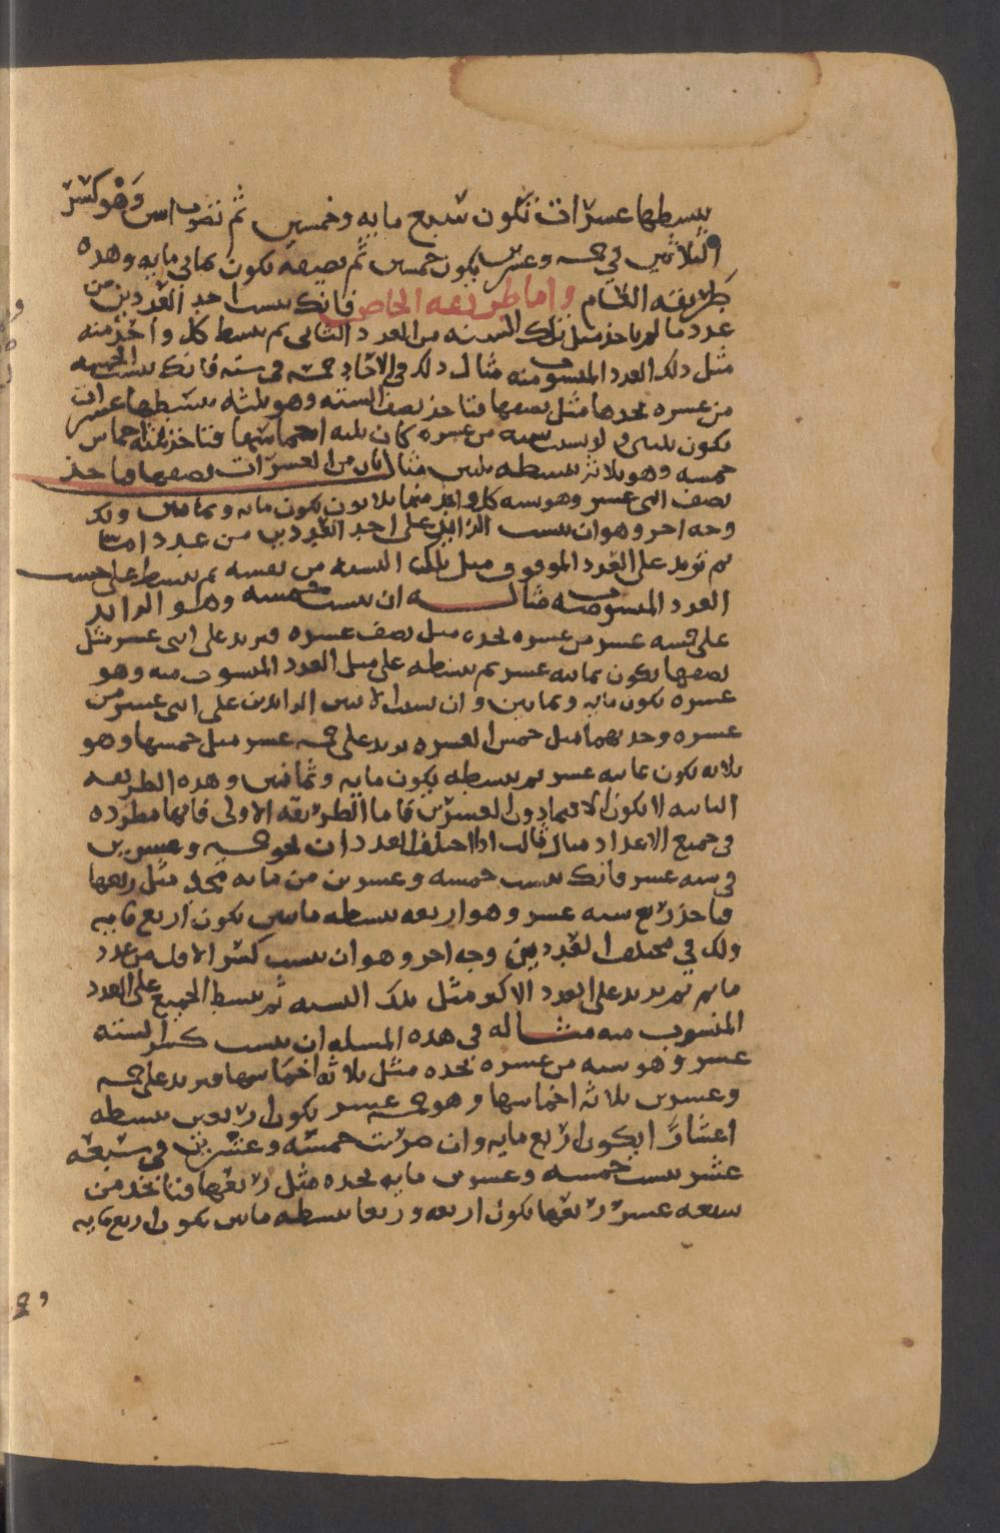 يبسطها عشرات تكون سبع مايه وخمسين ثم تضرب اثنين وهو كسر
الثلاثين في خمسه وعشرين يكون خمسين ثم تضيفه يكون ثماني مايه وهذه
طريقه العام واما طريقه الخاص فانك تنسب احد العددين من
عدد ما ثم تاخذ مثل تلك النسبه من العدد الثاني ثم تبسط كل واحد منه
مثل ذلك العدد المنسوب منه مثال ذلك في الاحاد خمسه في سته فانك تنسب الخمسه
من عشره تجدها مثل نصفها فتاخذ نصف السته وهو ثلثه تبسطها عشرات
تكون ثلثين ولو نسبت سته من عشره كان ثلثه اخماسها فتاخذ ثلثه اخماس
خمسه وهو ثلاثه تبسطه ثلثين مثال ثان من العشرات نصفها فتاخذ
نصف اثني عشر وهو سته كل واحد منها ثلاثون تكون مايه وثمانين ولك
وجه اخر وهو ان تنسب الزايد على احد العددين من عدد
ثم تزيد على العدد الموقوف مثل تلك النسبه من نفسه ثم تبسط على حسب
العدد المنسوب منه مثاله ان تنسب خمسه وهو الزايد
على خمسه عشر من عشره تجده مثل نصف عشره فتزيد على اثني عشر مثل
نصفها يكون ثمانيه عشر ثم تبسطه على مثل العدد المنسوب منه وهو
عشره تكون مايه وثمانين وان نسبت الاثنين الزايدين على اثني عشر من
عشره وجدتهما مثل خمس العشره تزيد على خمسه عشر مثل خمسها وهو
ثلاثه تكون ثمانيه عشر ثم تبسطه يكون مايه وثمانين وهذه الطريقه
الثانيه لا تكون الا فيما دون العشرين فاما الطريقه الاولى فانها مطرده
في جميع الاعداد مثال ثالث اذا اختلف العددان نحو خمسه وعشرين
في سته عشر فانك تنسب خمسه وعشرين من مايه تجد مثل ربعها
فتاخذ ربع سته عشر وهو اربعه تبسطه مايين يكون اربع مايه
ولك في مختلف العددين وجه اخر وهو ان تنسب كسر الاول من عدد
ما ثم تزيد على العدد الاكبر مثل تلك النسبه ثم تبسط الجميع على العدد
المنسوب منه مثاله في هذه المسله ان تنسب كسر السته
عشر وهو سته من عشره تجده مثل ثلاثه اخماسها فتزيد على خمسه
وعشرين ثلاثه اخماسها وهو خمسه عشر يكون اربعين تبسطه
اعشارا يكون اربع مايه وان ضربت خمسه وعشرين في سبعه
عشر تنسب خمسه وعشرين مايه تجده مثل ربعها فتاخذ من
سبعه عشر ربعها يكون اربعه وربعا تبسطه مايين تكون اربع مايه
و